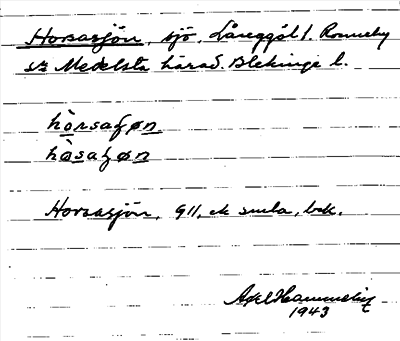 Horsasjön, sjö, Låneggöl f. Ronneby
sz Medelsta härad. Blekinge l.
hòrsaʃøn
hòsaʃøn
Horsasjön, G11, ek smla, bek.
Axel Hammelin
1943